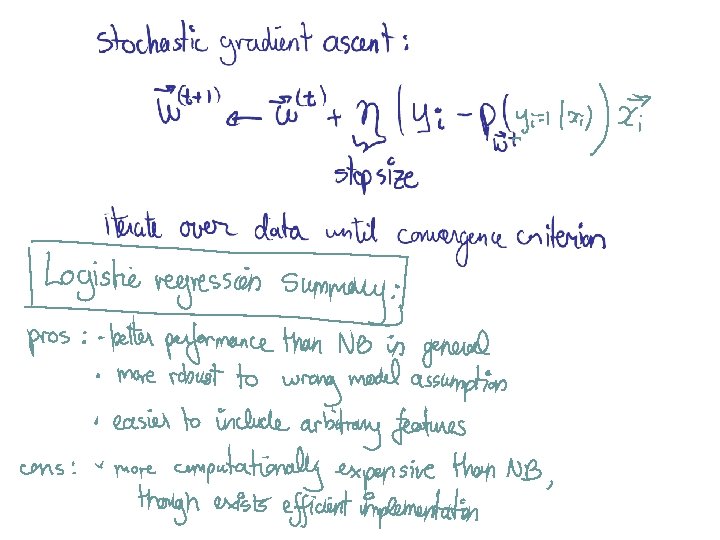 stochastic gradient ascent:
w⃗^(t+1) ← w⃗^(t) + η (y_i − p_w⃗^t(y_i=1|x_i)) x⃗_i
step size
iterate over data until convergence criterion
Logistic regression Summary:
pros: - better performance than NB in general
• more robust to wrong model assumption
• easier to include arbitrary features
cons: • more computationally expensive than NB,
though exists efficient implementation